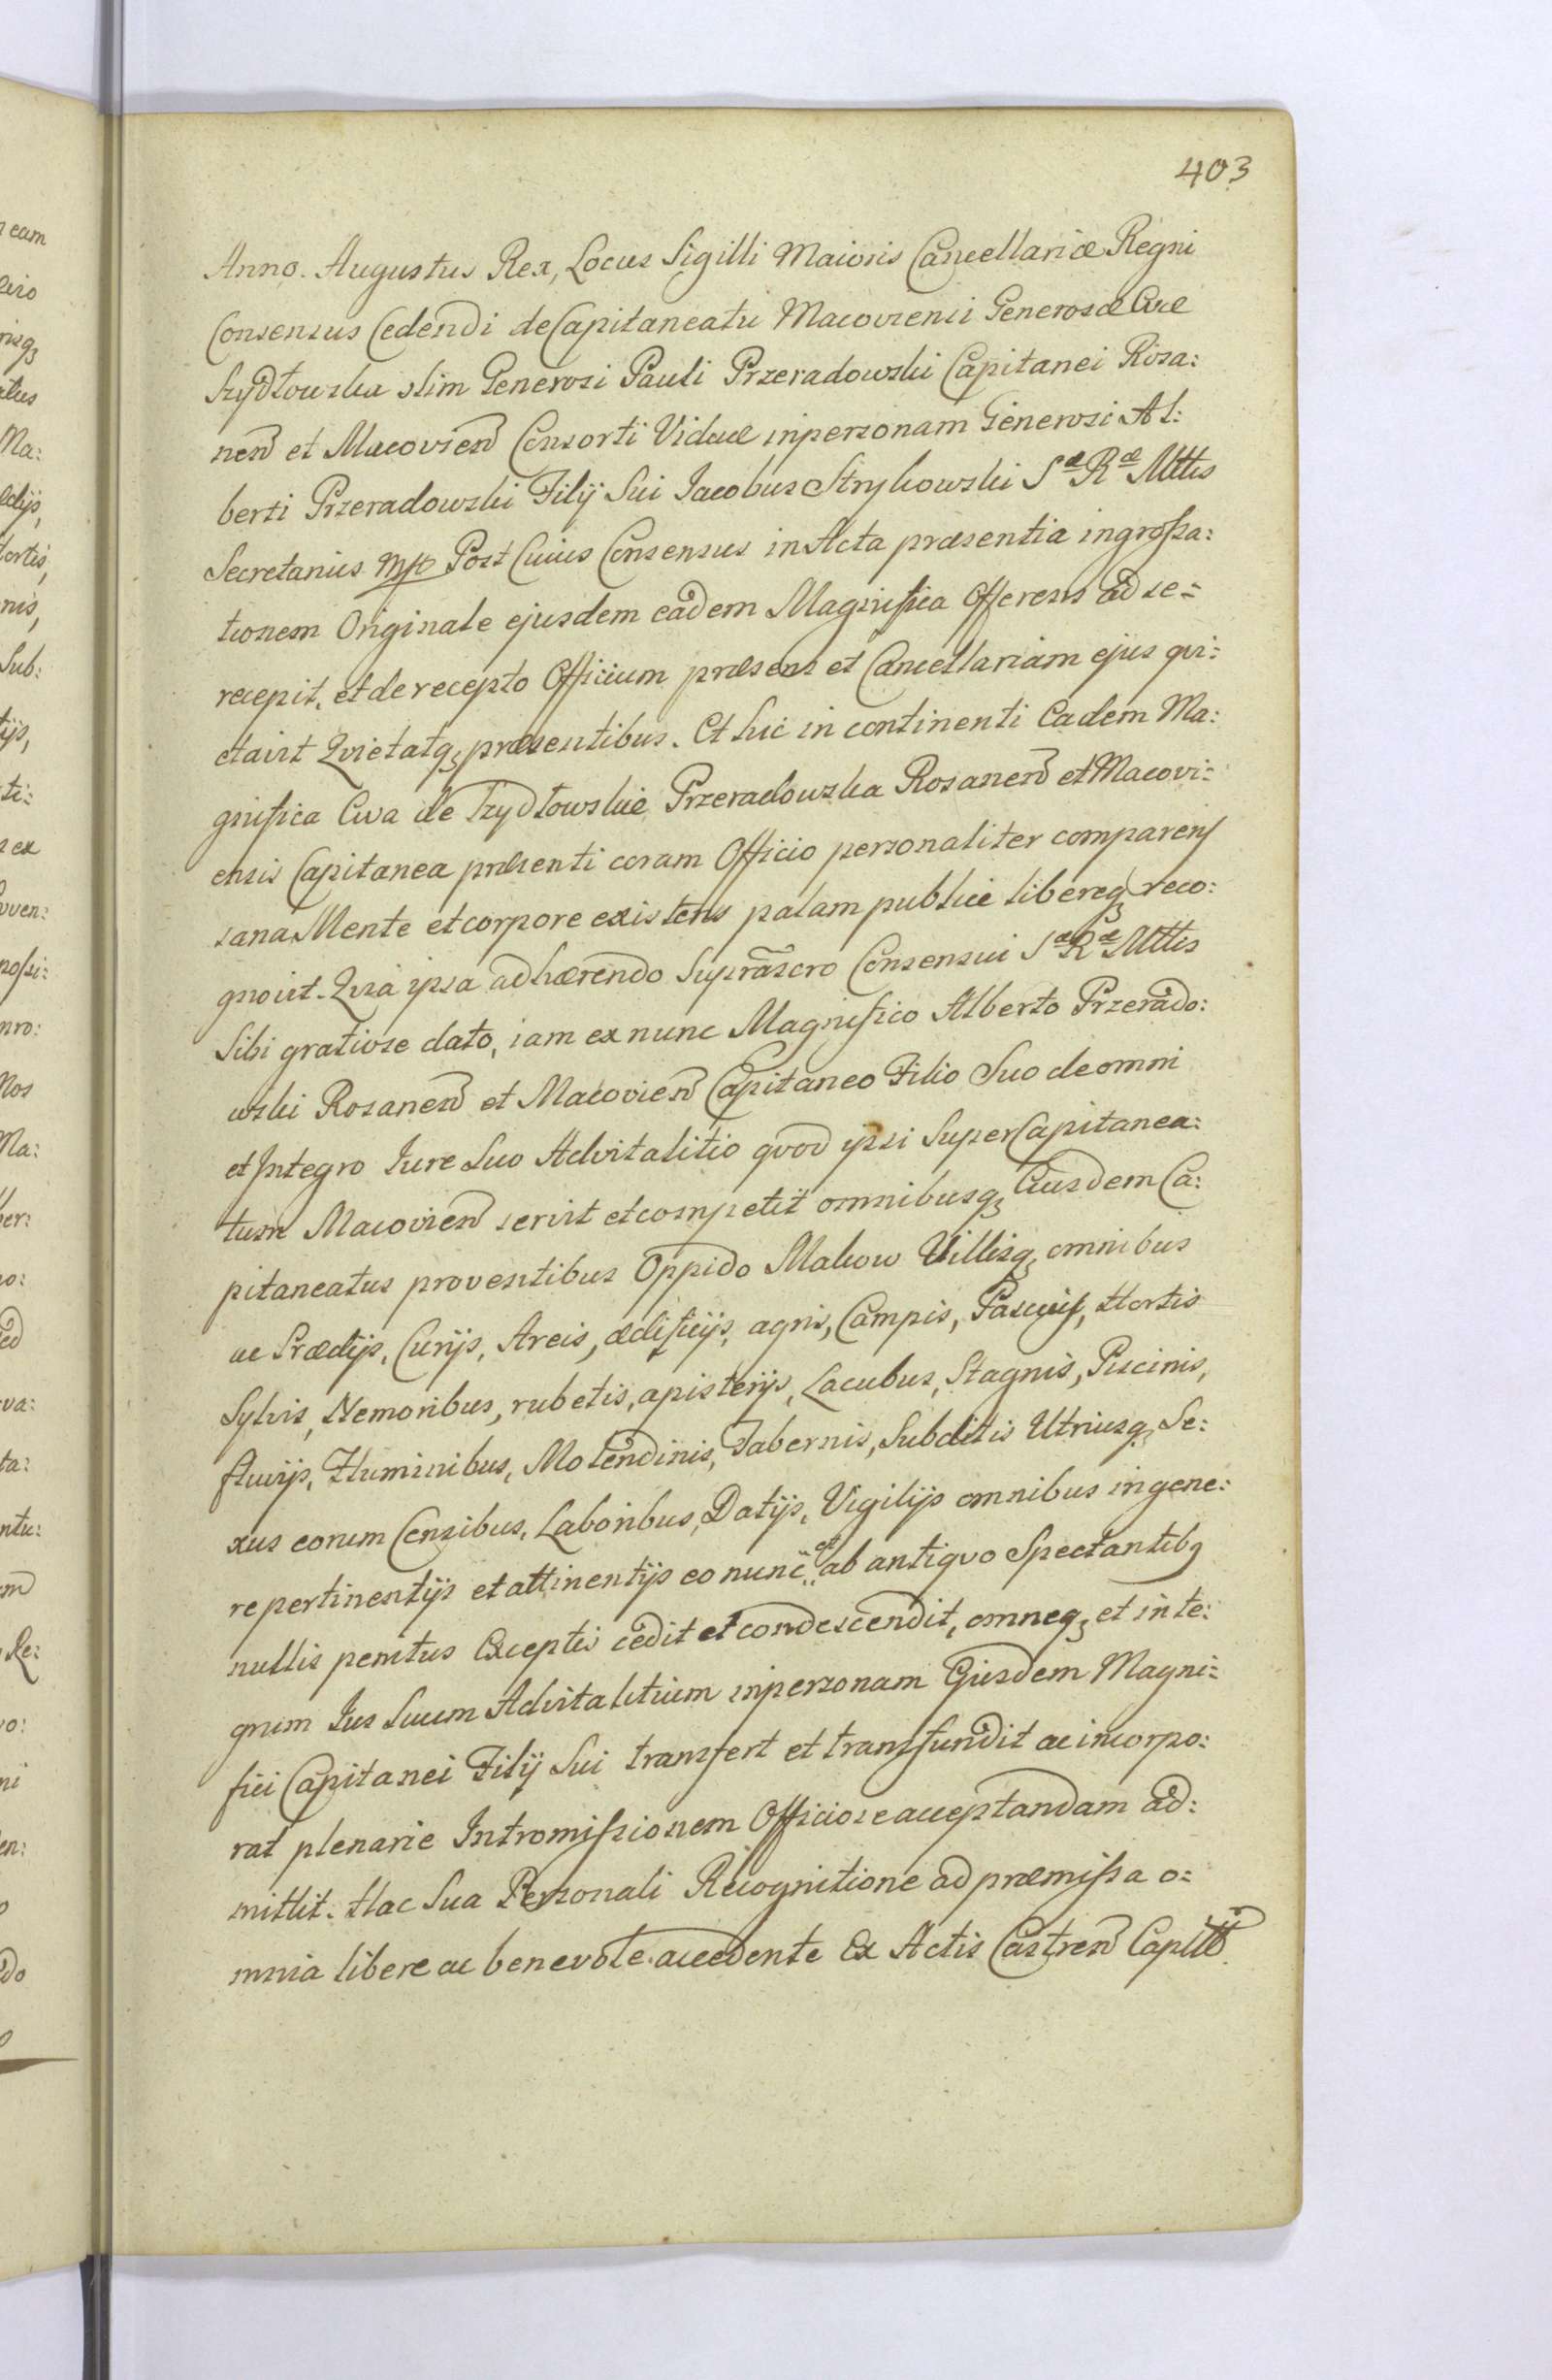 403
Anno. Augustus Rex, Locus Sigilli Maioris Cancellariæ Regni
Consensus Cedendi de Capitaneatu Macoviensi Generosæ Evæ
Szydłowska olim Generosi Pauli Przeradowski Capitanei Rosa:
nen et Macovien Consorti Viduæ in personam Generosi Al:
berti Przeradowski Filij Sui Jacobus Strykowski Sæ Ræ Mttis
Secretarius mp Post Cuius Consensus in Acta præsentia ingrossa:
tionem Originale ejusdem eadem Magnifica Offerens ad se=
recepit, et de recepto Officium præsens et Cancellariam ejus qvi:
etavit Qvietatq præsentibus. Et hic in continenti Eadem Ma:
gnifica Eva de Szydłowskie Przeradowska Rosanen et Macovi:
ensis Capitanea præsenti coram Officio personaliter comparens
sana Mente et corpore existens palam publice libereq reco:
gnovit. Qvia ipsa adhærendo Suprascro Consensui Sæ Ræ Mttis
Sibi gratiose dato, iam ex nunc Magnifico Alberto Przerado:
wski Rosanen et Macovien Capitaneo Filio Suo de omni
et Integro Iure Suo Advitalitio qvod ipsi Super Capitanea:
tum Macovien servit et competit omnibusq Eiusdem Ca:
pitaneatus proventibus Oppido Makow Villisq omnibus
ac Prædijs, Curijs, Areis, ædificijs, agris, Campis, Pascuis, Hortis
Sylvis, Nemoribus, rubetis, apisterijs, Lacubus, Stagnis, Piscinis,
fluvijs, Fluminibus, Molendinis, Tabernis, Subditis Utriusq Se:
xus eorum Censibus, Laboribus, Datijs, Vigilijs omnibus in gene:
re pertinentijs et attinentijs eo nunc et ab antiqvo Spectantibq
nullis penitus Exceptis cedit et condescendit, omneq et inte:
grum Ius Suum Advitalitium in personam Ejusdem Magni:
fici Capitanei Filij Sui transfert et transfundit ac incorpo:
rat plenarie Intromissionem Officiose acceptandam ad:
mittit. Hac Sua Personali Recognitione ad præmissa o:
mnia libere ac benevole accedente Ex Actis Castren Capit